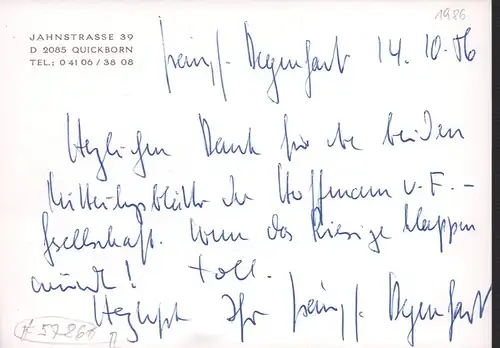 1986
JAHNSTRASSE 39
D 2085 QUICKBORN
TEL.: 0 41 06 / 38 08
Degenhart 14.10.86
Herzlichen Dank für die beiden
Mitteilungsblätter der Hoffmann v. F. -
Gesellschaft. Wenn das Riesige klappen
würde! Toll.
Herzlichst Ihr Degenhart
# 57860